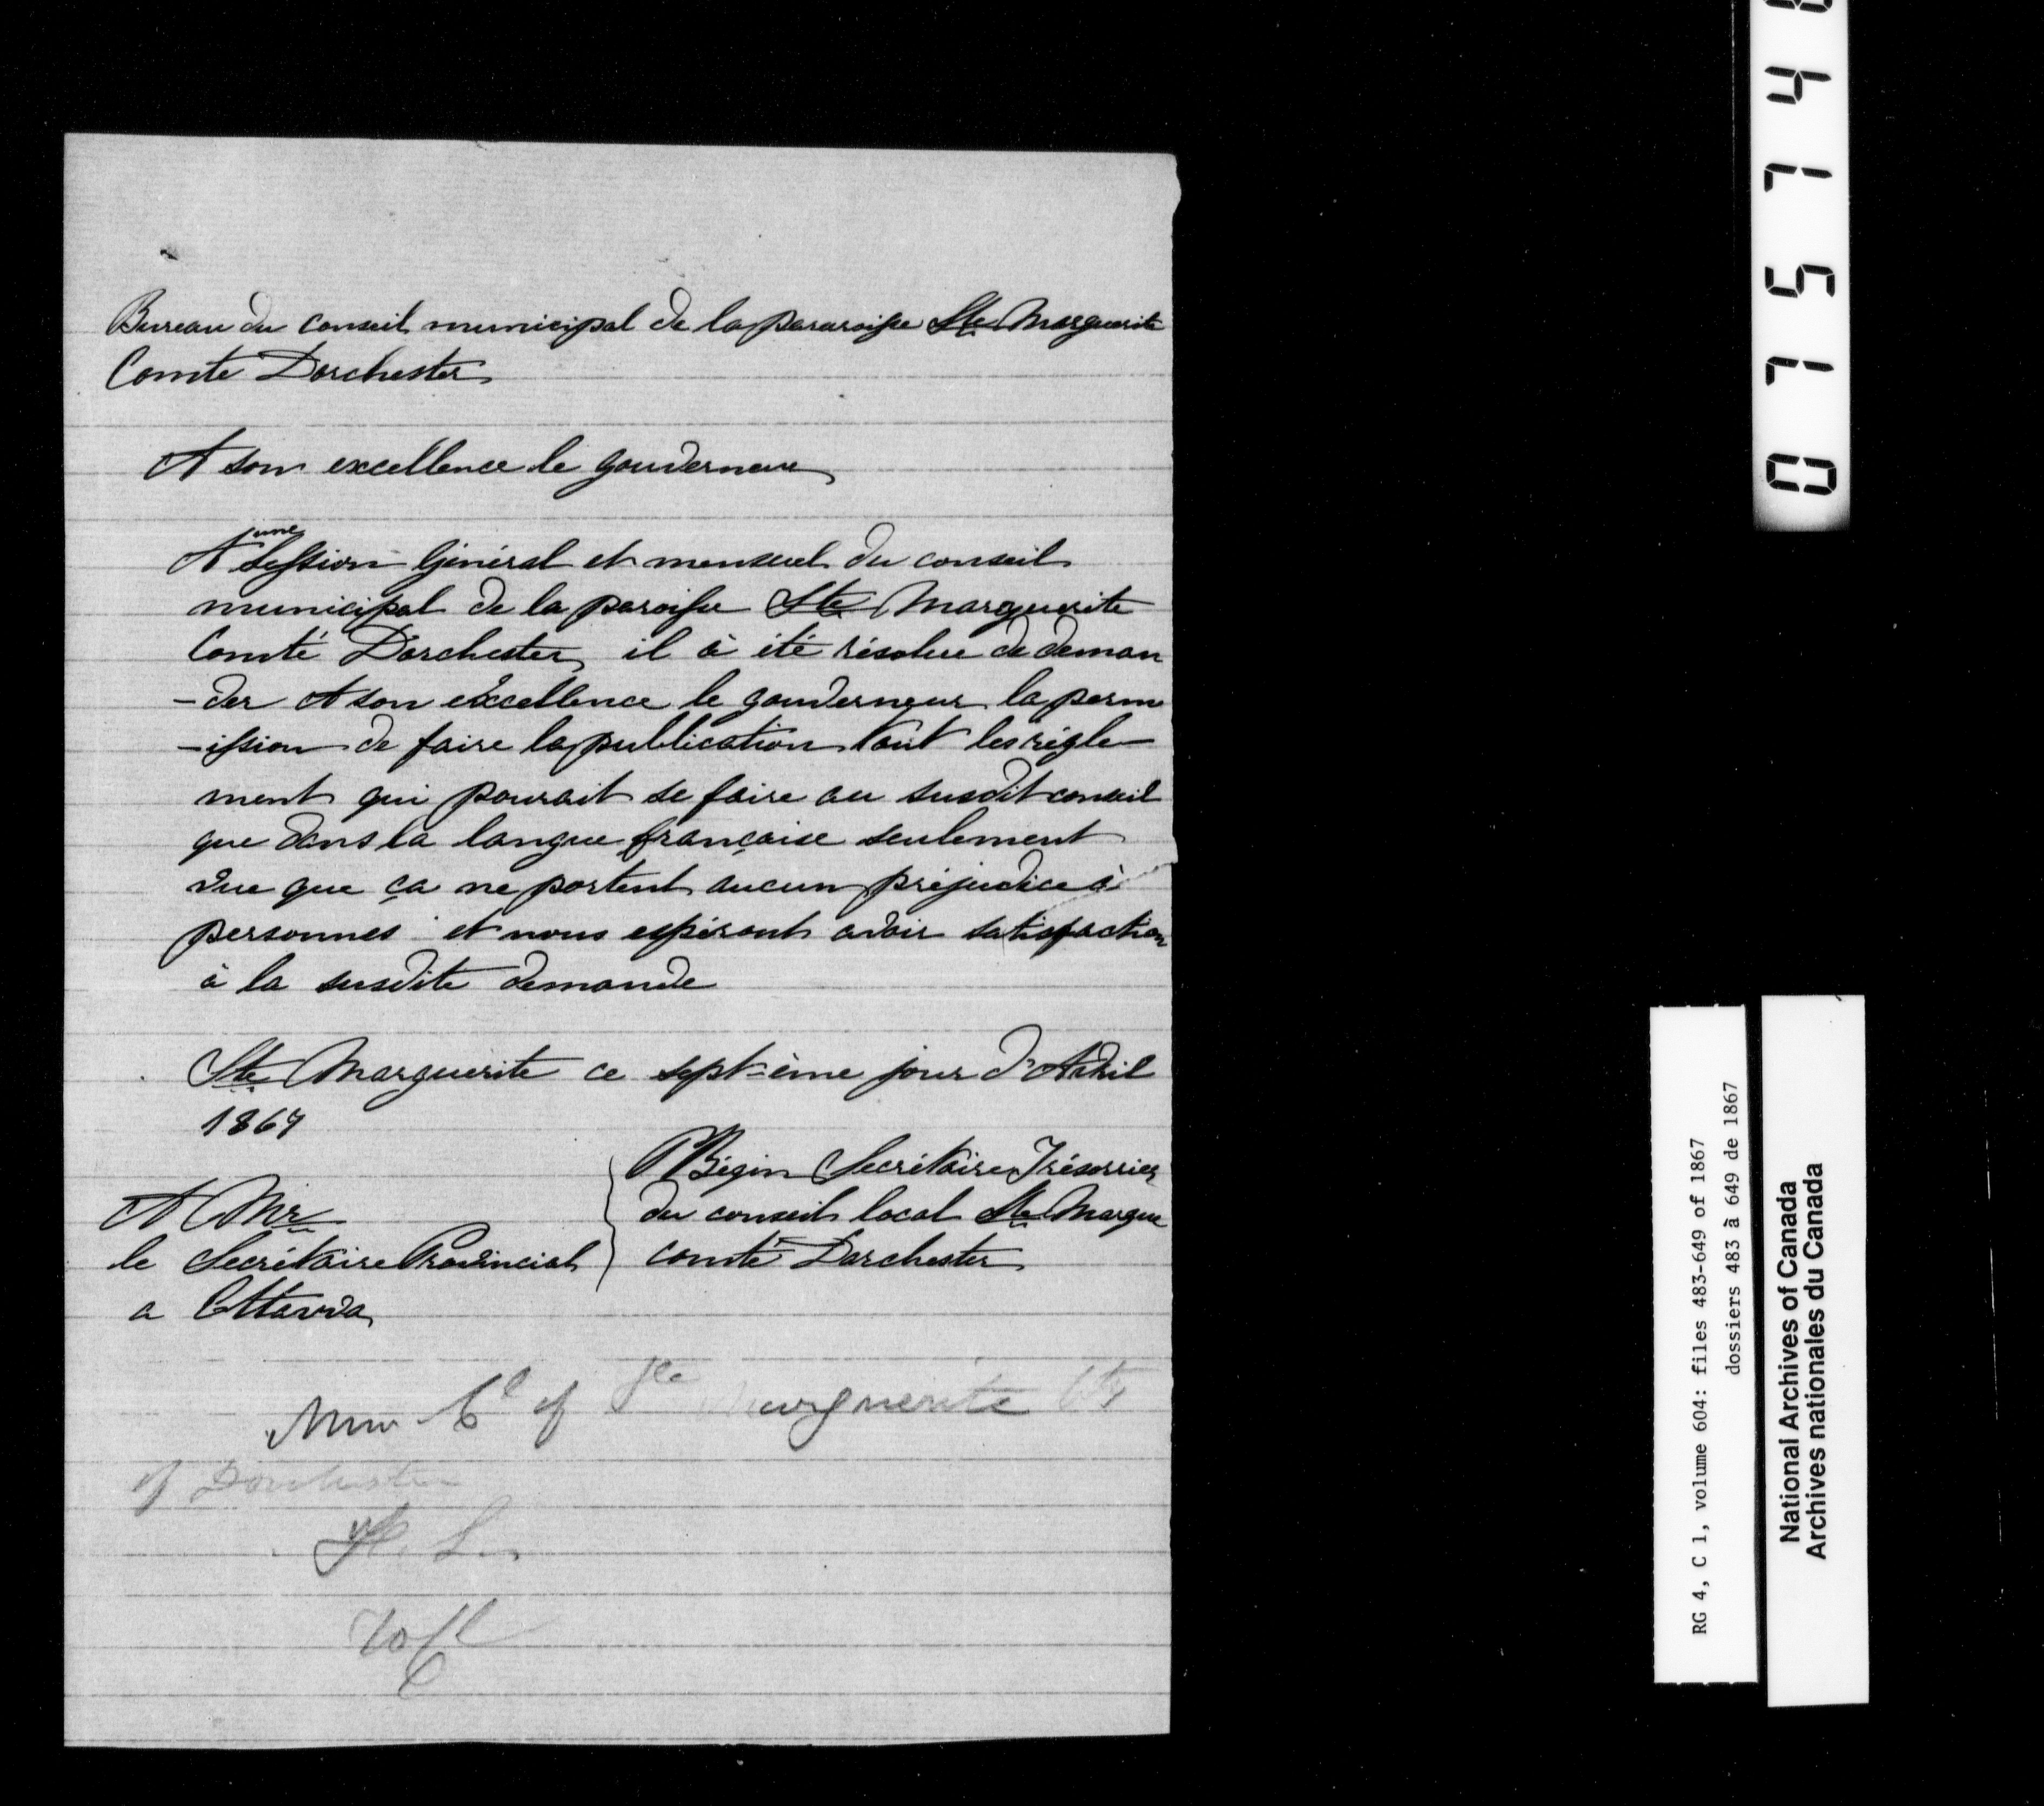 Bureau du conseil municipal de la pararoisse Ste Marguerite
Comte Dorchester
A son excellence le gouverneur
A une Session Général et mensuel du conseil
municipal de la paroisse Ste Marguerite
Comté Dorchester, il à été résolue de deman
-der A son excellence le gouverneur la perm
-ission de faire la publication tout les régle
ment qui pourait se faire au susdit conseil
que dans la langue française seulement
vue que ça ne portent aucun préjudice à
personnes et nous espéront avoir satisfaction
à la susdite demande
Ste Marguerite ce sept-ème jour d'Avril
1867
P Bégin Secrétaire Trésorrier
du conseil local Ste Margue
comté Dorchester
A Mr
le Secrétaire Provincial
a Ottawa
Mun Cl of Ste Marguerite Cty
of Dorchester
0 7 5 7 4
RG 4, C 1, volume 604: files 483-649 of 1867
dossiers 483 à 649 de 1867
National Archives of Canada
Archives nationales du Canada